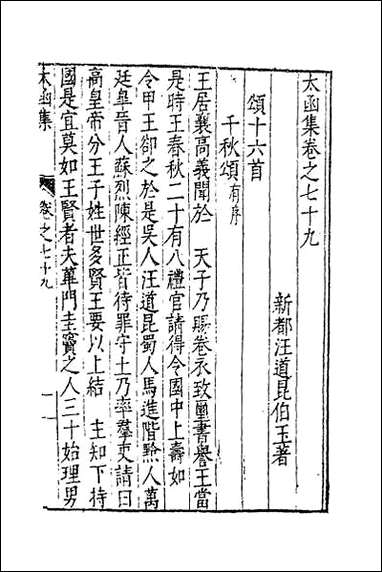 太函集卷之七十九
新都汪道昆伯玉著
頌十六首
千秋頌有序
王居襄高義聞於 天子乃賜卷衣致璽書譽王當
是時王春秋二十有八禮官請得令國中上壽如
令甲王卻之於是吳人汪道昆蜀人馬進階黔人萬
廷皋晉人蘇烈陳經正皆待罪守土乃率羣吏請曰
高皇帝分王子姓世多賢王要以上結 主知下持
國是宜莫如王賢者夫蓽門圭竇之人三十始理男
太函集 卷之七十九 一